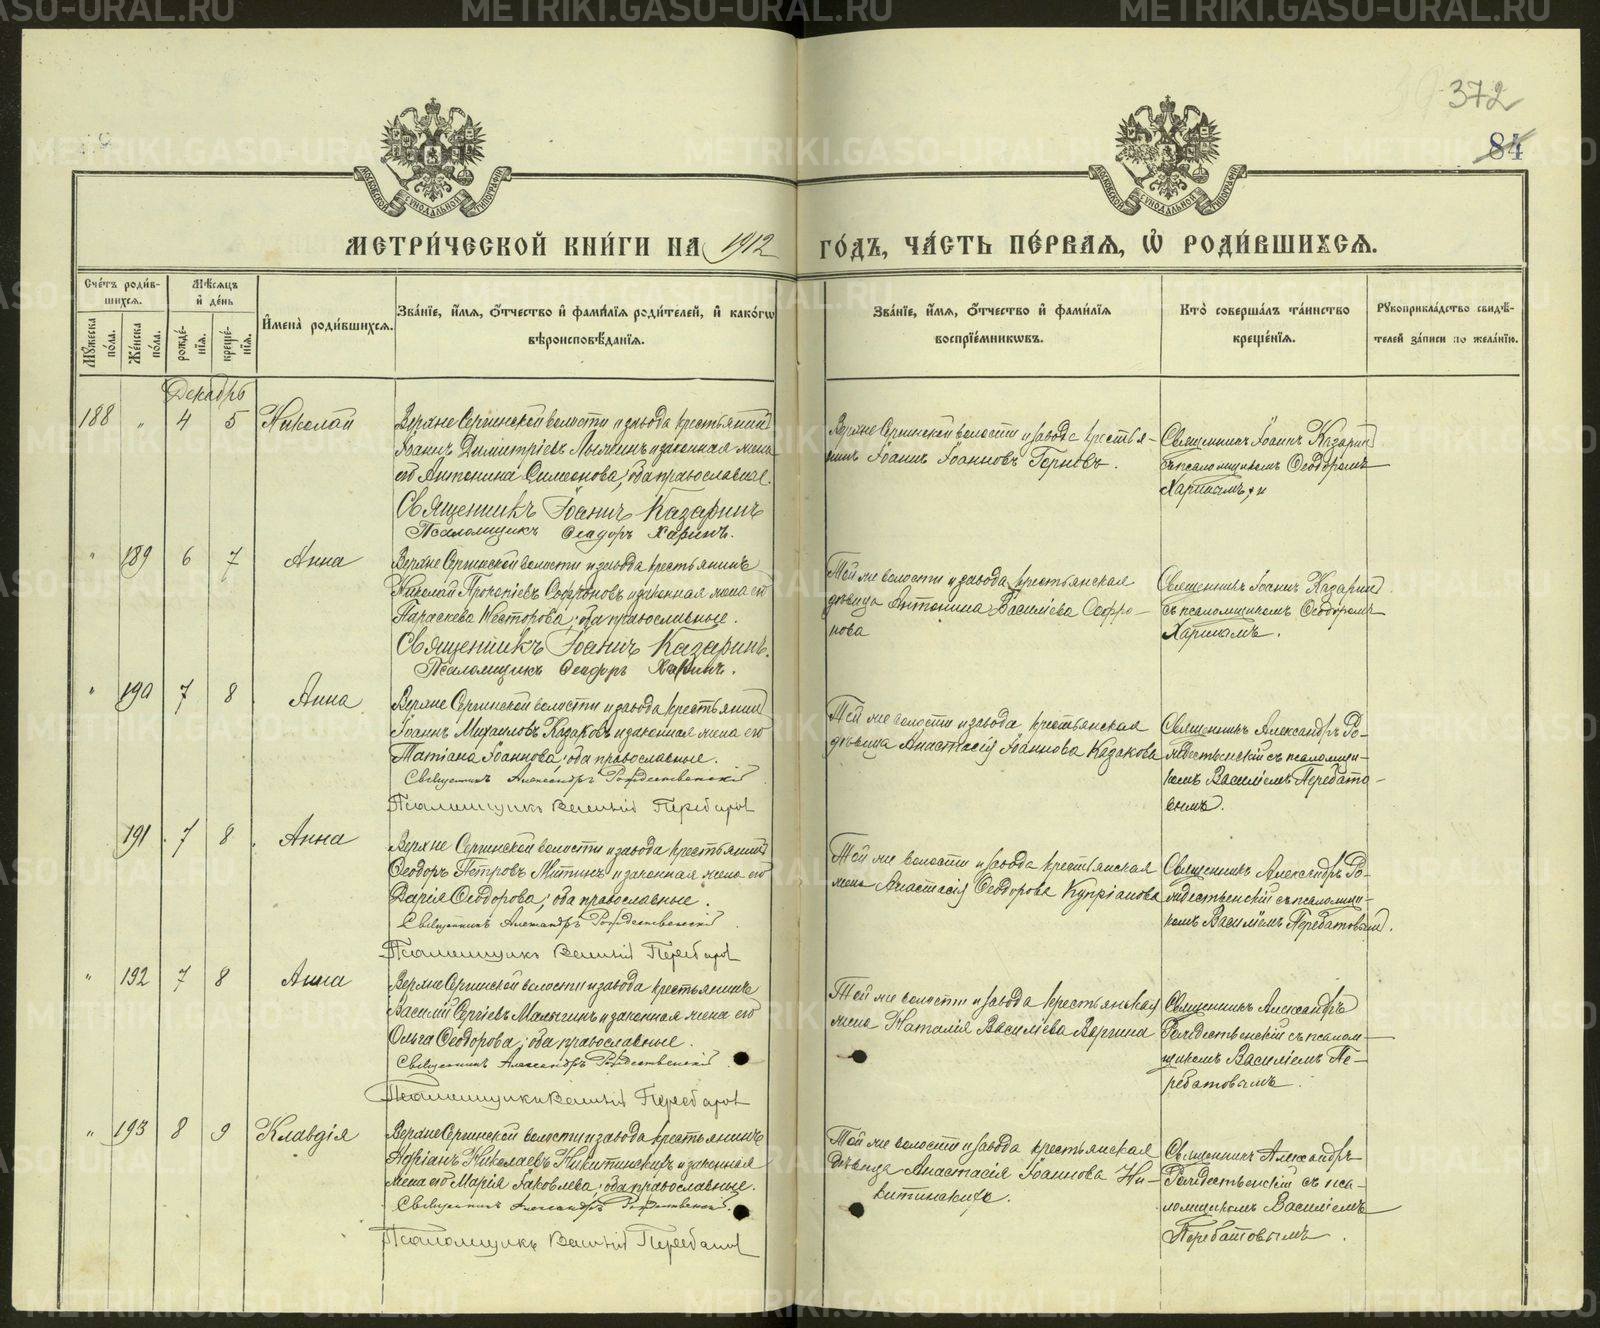 METRIKI.GASO-URAL.RU
372
84
МОСКОВСКОЙ СУНОДАЛЬНОЙ ТИПОГРАФІИ
МОСКОВСКОЙ СУНОДАЛЬНОЙ ТИПОГРАФІИ
МЕТРИ́ЧЕСКОЙ КНИ́ГИ НА 1912 ГО́ДЪ, ЧА́СТЬ ПЕ́РВАЯ, Ѡ҆ РОДИ́ВШИХСЯ.
Сче́тъ роди́в-
шихся.
Мꙋ́жеска по́ла.
Же́нска по́ла.
Мѣ́сяцъ
и҆ де́нь
рожде́-
нїя.
креще́-
нїя.
И҆мена̀ роди́вшихся.
Зва́нїе, и҆́мя, ѻ҆́тчество и҆ фами́лїя роди́телей, и҆ како́гѡ
вѣроисповѣ́данїя.
Зва́нїе, и҆́мя, ѻ҆́тчество и҆ фами́лїя
воспрїе́мникѡвъ.
Кто̀ соверша́лъ та́инство
креще́нїя.
Рꙋкоприкла́дство свидѣ́-
телей за́писи по жела́нїю.
Декабрь
188 " 4 5 Николай
Верхне Сергинской волости и завода крестьянинъ
Іоаннъ Димитріевъ и законная жена
его Антонина Симеонова; оба православные.
Священникъ Іоаннъ Казаринъ
Псаломщикъ Ѳеодоръ Харинъ.
Верхне Сергинской волости и завода крестья-
нинъ Іоаннъ Іоанновъ Горновъ.
Священникъ Іоаннъ Казаринъ
съ псаломщикомъ Ѳеодоромъ
" 189 6 7 Анна
Верхне Сергинской волости и завода крестьянинъ
Николай Прокопіевъ Софроновъ и законная жена его
Параскева Несторова; оба православные.
Священникъ Іоаннъ Казаринъ.
Псаломщикъ Ѳеодоръ Харинъ.
Той же волости и завода крестьянская
дѣвица Антонина Василіева Софро-
нова
Священникъ Іоаннъ Казаринъ
съ псаломщикомъ Ѳеодоромъ
Харинымъ.
" 190 7 8 Анна
Верхне Сергинской волости и завода крестьянинъ
Іоаннъ Михаиловъ Казаковъ и законная жена его
Татіана Іоаннова; оба православные.
Священникъ Александръ Рождественскій
Псаломщикъ Василій Перебатов
Той же волости и завода крестьянская
дѣвица Анастасія Іоаннова Казакова
Священникъ Александръ Ро-
ждественскій съ псаломщи-
комъ Василіемъ Перебато-
вымъ.
191 7 8 Анна
Верхне Сергинской волости и завода крестьянинъ
Ѳеодоръ Петровъ Митинъ и законная жена его
Дарія Ѳеодорова; оба православные.
Священникъ Александръ Рождественскій
Псаломщикъ Василій Перебатов
Той же волости и завода крестьянская
жена Анастасія Ѳеодорова Купріанова
Священникъ Александръ Ро-
ждественскій съ псаломщи-
комъ Василіемъ Перебатовымъ.
" 192 7 8 Анна
Верхне Сергинской волости и завода крестьянинъ
Василій Сергіевъ Малыгинъ и законная жена его
Ольга Ѳеодорова; оба православные.
Священникъ Александръ Рождественскій
Псаломщикъ Василій Перебатов
Той же волости и завода крестьянская
жена Наталія Василіева Вяргина
Священникъ Александръ
Рождественскій съ псалом-
щикомъ Василіемъ Пе-
ребатовымъ.
" 193 8 9 Клавдія
Верхне Сергинской волости и завода крестьянинъ
Адріанъ Николаевъ Никитинскихъ и законная
жена его Марія Іаковлева; оба православные.
Священникъ Александръ Рождественскій
Псаломщикъ Василій Перебатов
Той же волости и завода крестьянская
дѣвица Анастасія Іоаннова Ни-
китинскихъ.
Священникъ Александръ
Рождественскій съ пса-
ломщикомъ Василіемъ
Перебатовымъ.